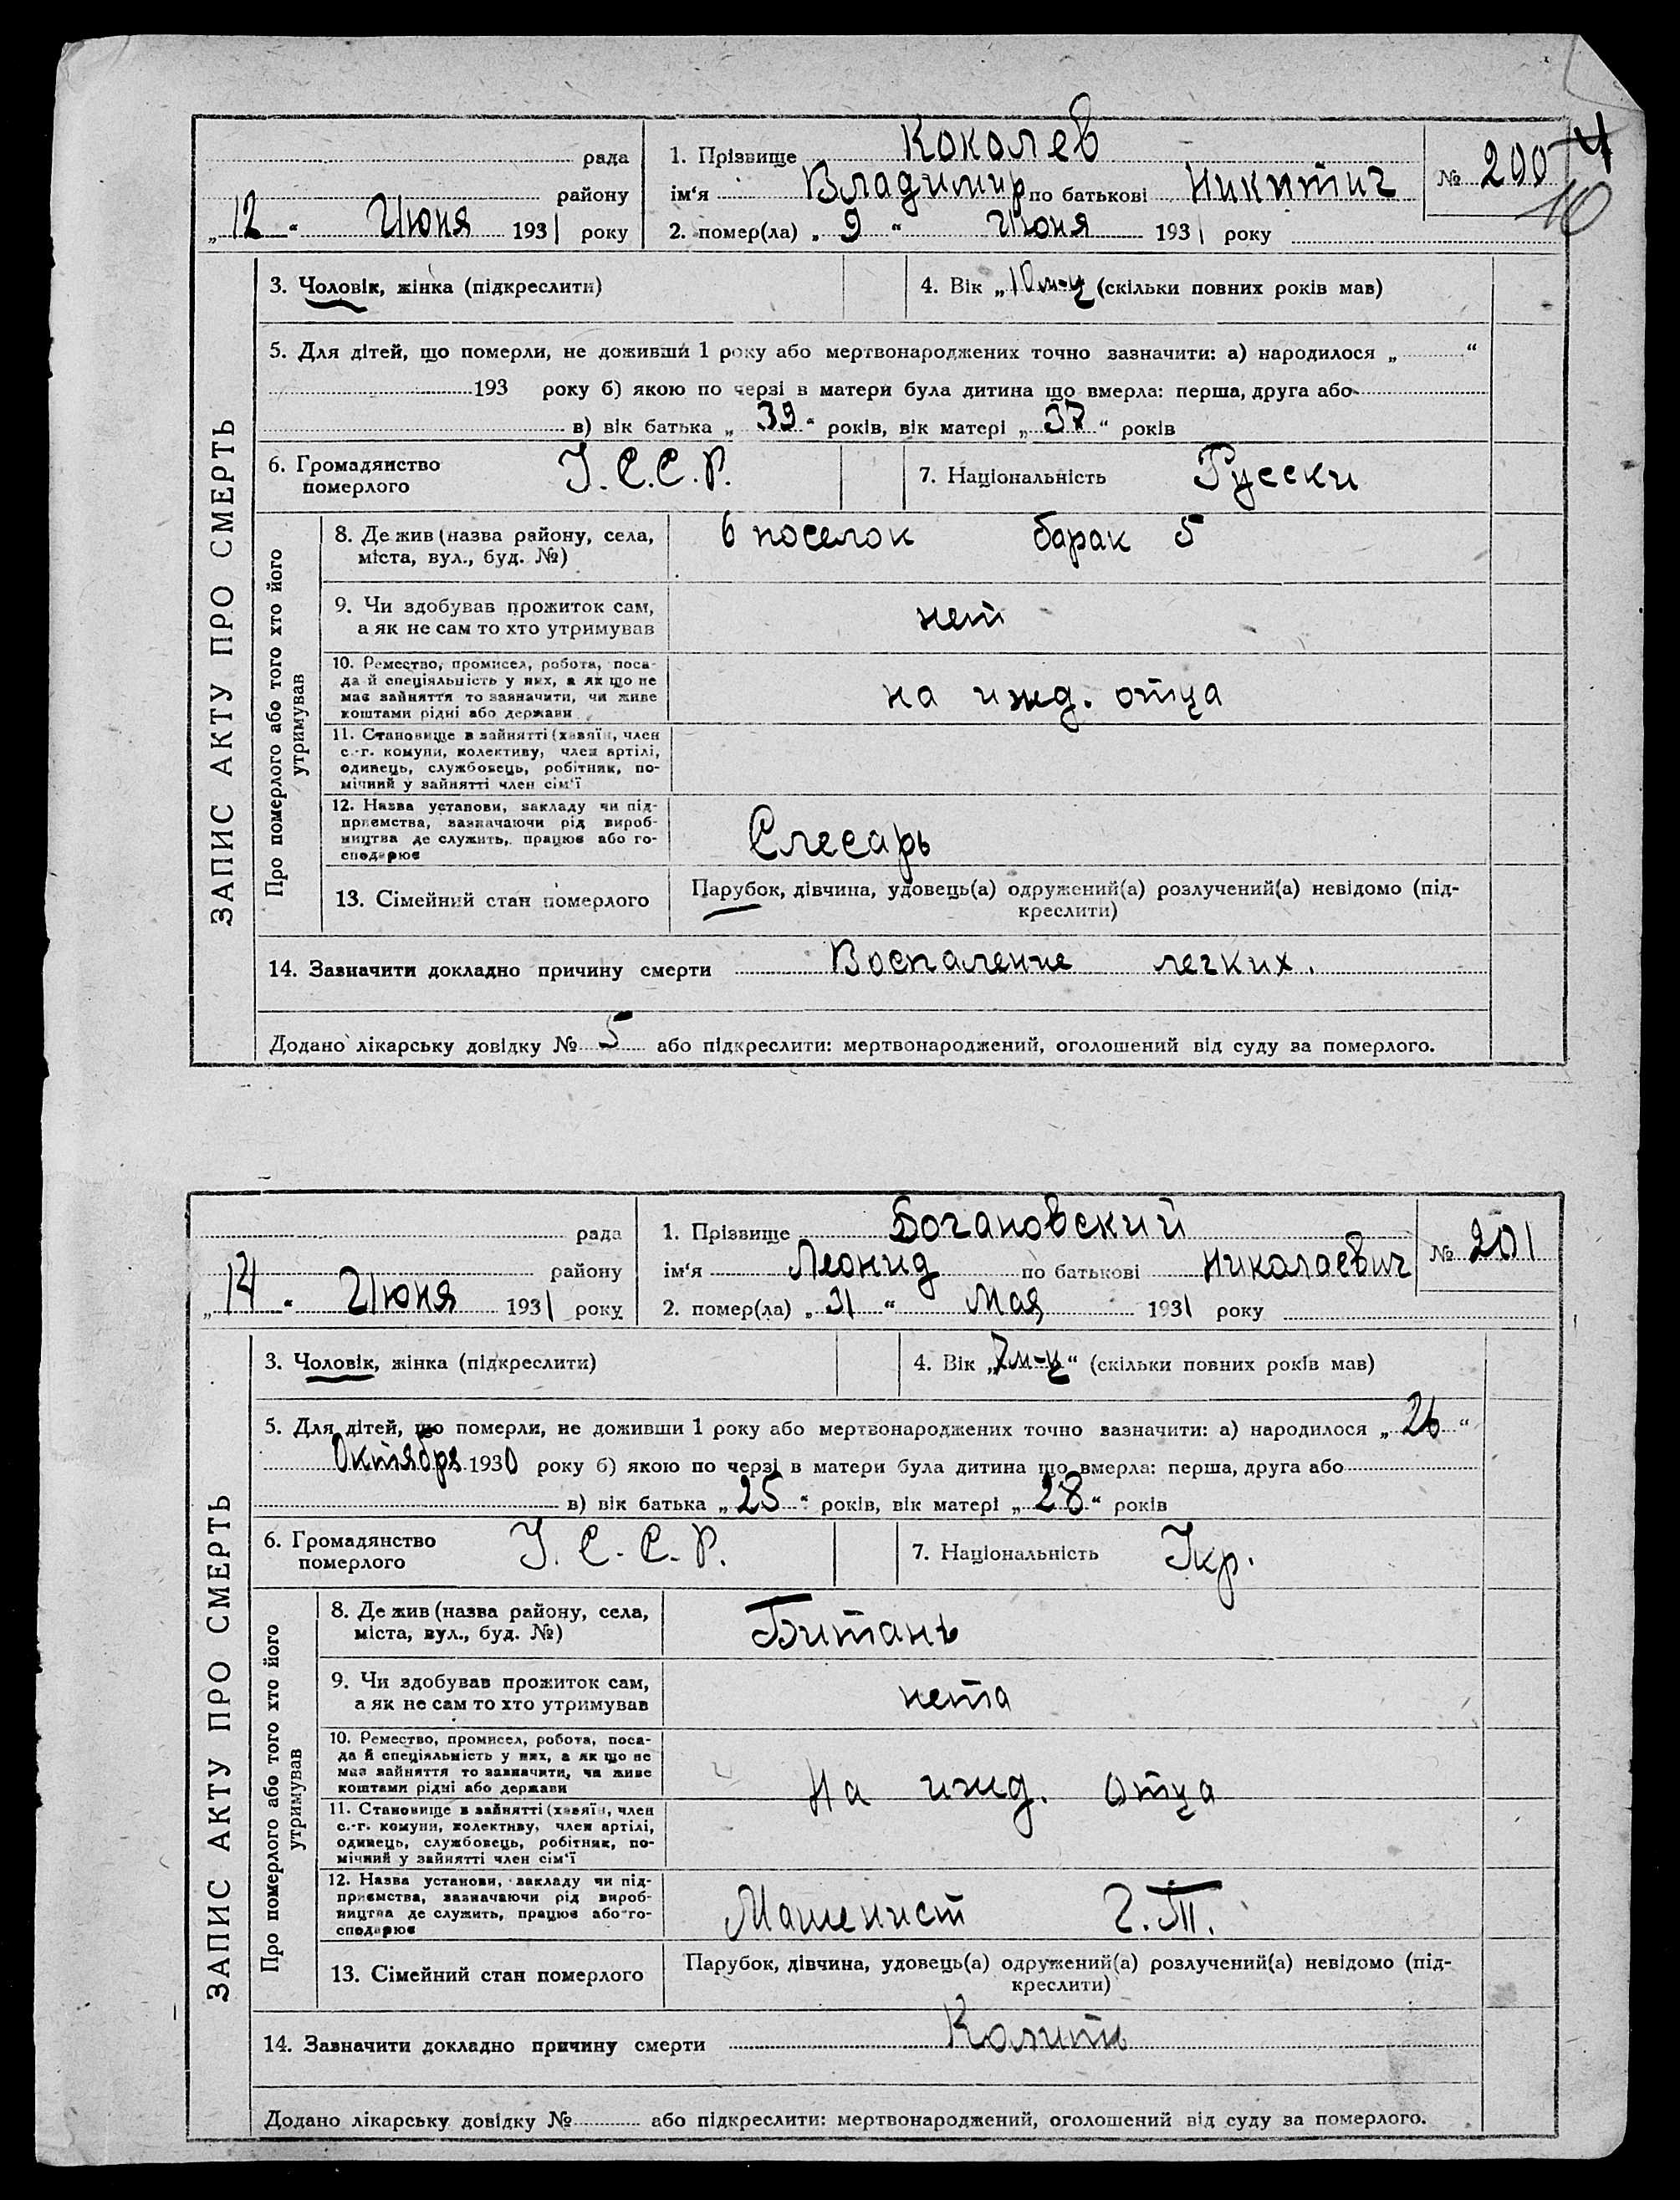 рада
району
„ 12 “ Июня 1931 року
1. Прізвище Коколев
ім‘я Владимир по батькові Никитич
2. помер(ла) „ 9 “ Июня 1931 року
№ 200
4
10
ЗАПИС АКТУ ПРО СМЕРТЬ
3. Чоловік, жінка (підкреслити)
4. Вік „10 м-ц (скільки повних років мав)
5. Для дітей, що померли, не доживши 1 року або мертвонароджених точно зазначити: а) народилося „ “
193 року б) якою по черзі в матери була дитина що вмерла: перша, друга або
в) вік батька „ 39 “ років, вік матері „ 37 “ років
6. Громадянство
померлого
У.С.С.Р.
7. Національність Русски
Про померлого або того хто його
утримував
8. Де жив (назва району, села,
міста, вул., буд. №)
6 поселок барак 5
9. Чи здобував прожиток сам,
а як не сам то хто утримував
нет
10. Ремество, промисел, робота, поса-
да й спеціяльність у них, а як що не
має зайняття то зазначити, чи живе
коштами рідні або держави
на ижд. отца
11. Становище в зайнятті (хазяїн, член
с.-г. комуни, колективу, член артілі,
одинець, службовець, робітник, по-
мічний у зайнятті член сім‘ї
12. Назва установи, закладу чи під-
приємства, зазначаючи рід вироб-
ництва де служить, працює або го-
сподарює
Слесарь
13. Сімейний стан померлого
Парубок, дівчина, удовець(а) одружений(а) розлучений(а) невідомо (під-
креслити)
14. Зазначити докладно причину смерти Воспаление легких.
Додано лікарську довідку № 5 або підкреслити: мертвонароджений, оголошений від суду за померлого.
рада
району
„ 14 “ Июня 1931 року
1. Прізвище Богановский
ім‘я Леонид по батькові Николаевич
2. помер(ла) „ 31 “ Мая 1931 року
№ 201
ЗАПИС АКТУ ПРО СМЕРТЬ
3. Чоловік, жінка (підкреслити)
4. Вік „7 м-ц“ (скільки повних років мав)
5. Для дітей, що померли, не доживши 1 року або мертвонароджених точно зазначити: а) народилося „ 26 “
Октября 1930 року б) якою по черзі в матери була дитина що вмерла: перша, друга або
в) вік батька „ 25 “ років, вік матері „ 28 “ років
6. Громадянство
померлого
У.С.С.Р.
7. Національність Укр.
Про померлого або того хто його
утримував
8. Де жив (назва району, села,
міста, вул., буд. №)
9. Чи здобував прожиток сам,
а як не сам то хто утримував
нета
10. Ремество, промисел, робота, поса-
да й спеціяльність у них, а як що не
має зайняття то зазначити, чи живе
коштами рідні або держави
На ижд. отца
11. Становище в зайнятті (хазяїн, член
с.-г. комуни, колективу, член артілі,
одинець, службовець, робітник, по-
мічний у зайнятті член сім‘ї
12. Назва установи, закладу чи під-
приємства, зазначаючи рід вироб-
ництва де служить, працює або го-
сподарює
Машенист
13. Сімейний стан померлого
Парубок, дівчина, удовець(а) одружений(а) розлучений(а) невідомо (під-
креслити)
14. Зазначити докладно причину смерти Колить
Додано лікарську довідку № або підкреслити: мертвонароджений, оголошений від суду за померлого.